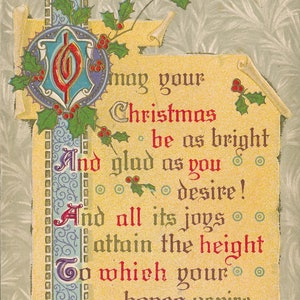 O may your
Christmas
be as bright
And glad as you
desire!
And all its joys
attain the height
To which your
hopes aspire